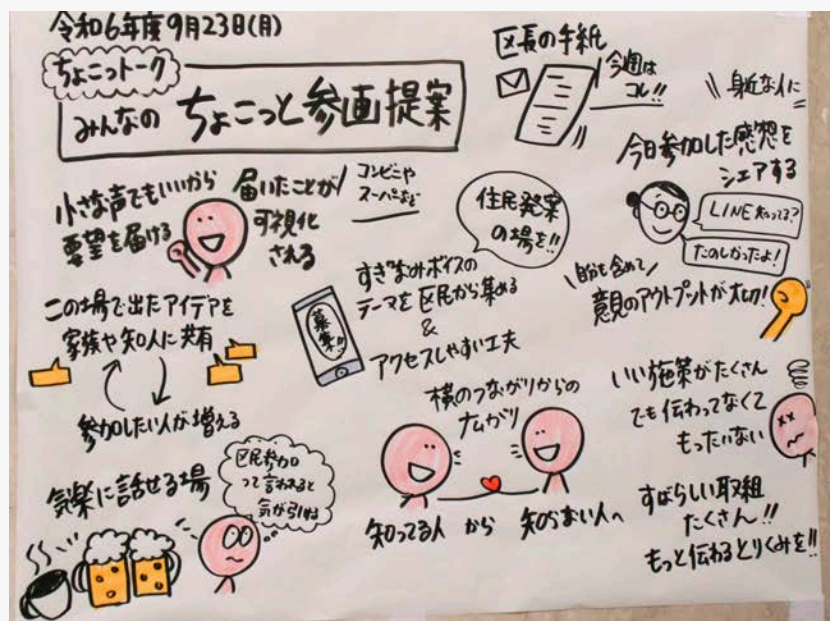 令和6年度9月23日(月)
ちょこっトーク
みんなの ちょこっと参画提案
区長の手紙
今週は
コレ!!
身近な人に
今日参加した感想を
シェアする
LINE知ってる?
たのしかったよ!
小さな声でもいいから
要望を届ける
届いたことが
可視化
される
コンビニや
スーパーなど
住民発案
の場を!!
すぎなみボイスの
テーマを区民から集める
&
アクセスしやすい工夫
募集!!
自分も含めて
意見のアウトプットが大切!
この場で出たアイデアを
家族や知人に共有
参加したい人が増える
横のつながりからの
広がり
知ってる人 から 知らない人へ
いい施策がたくさん
でも伝わってなくて
もったいない
気楽に話せる場
区民参加
って言われると
気が引ける
すばらしい取組
たくさん!!
もっと伝わるとりくみを!!